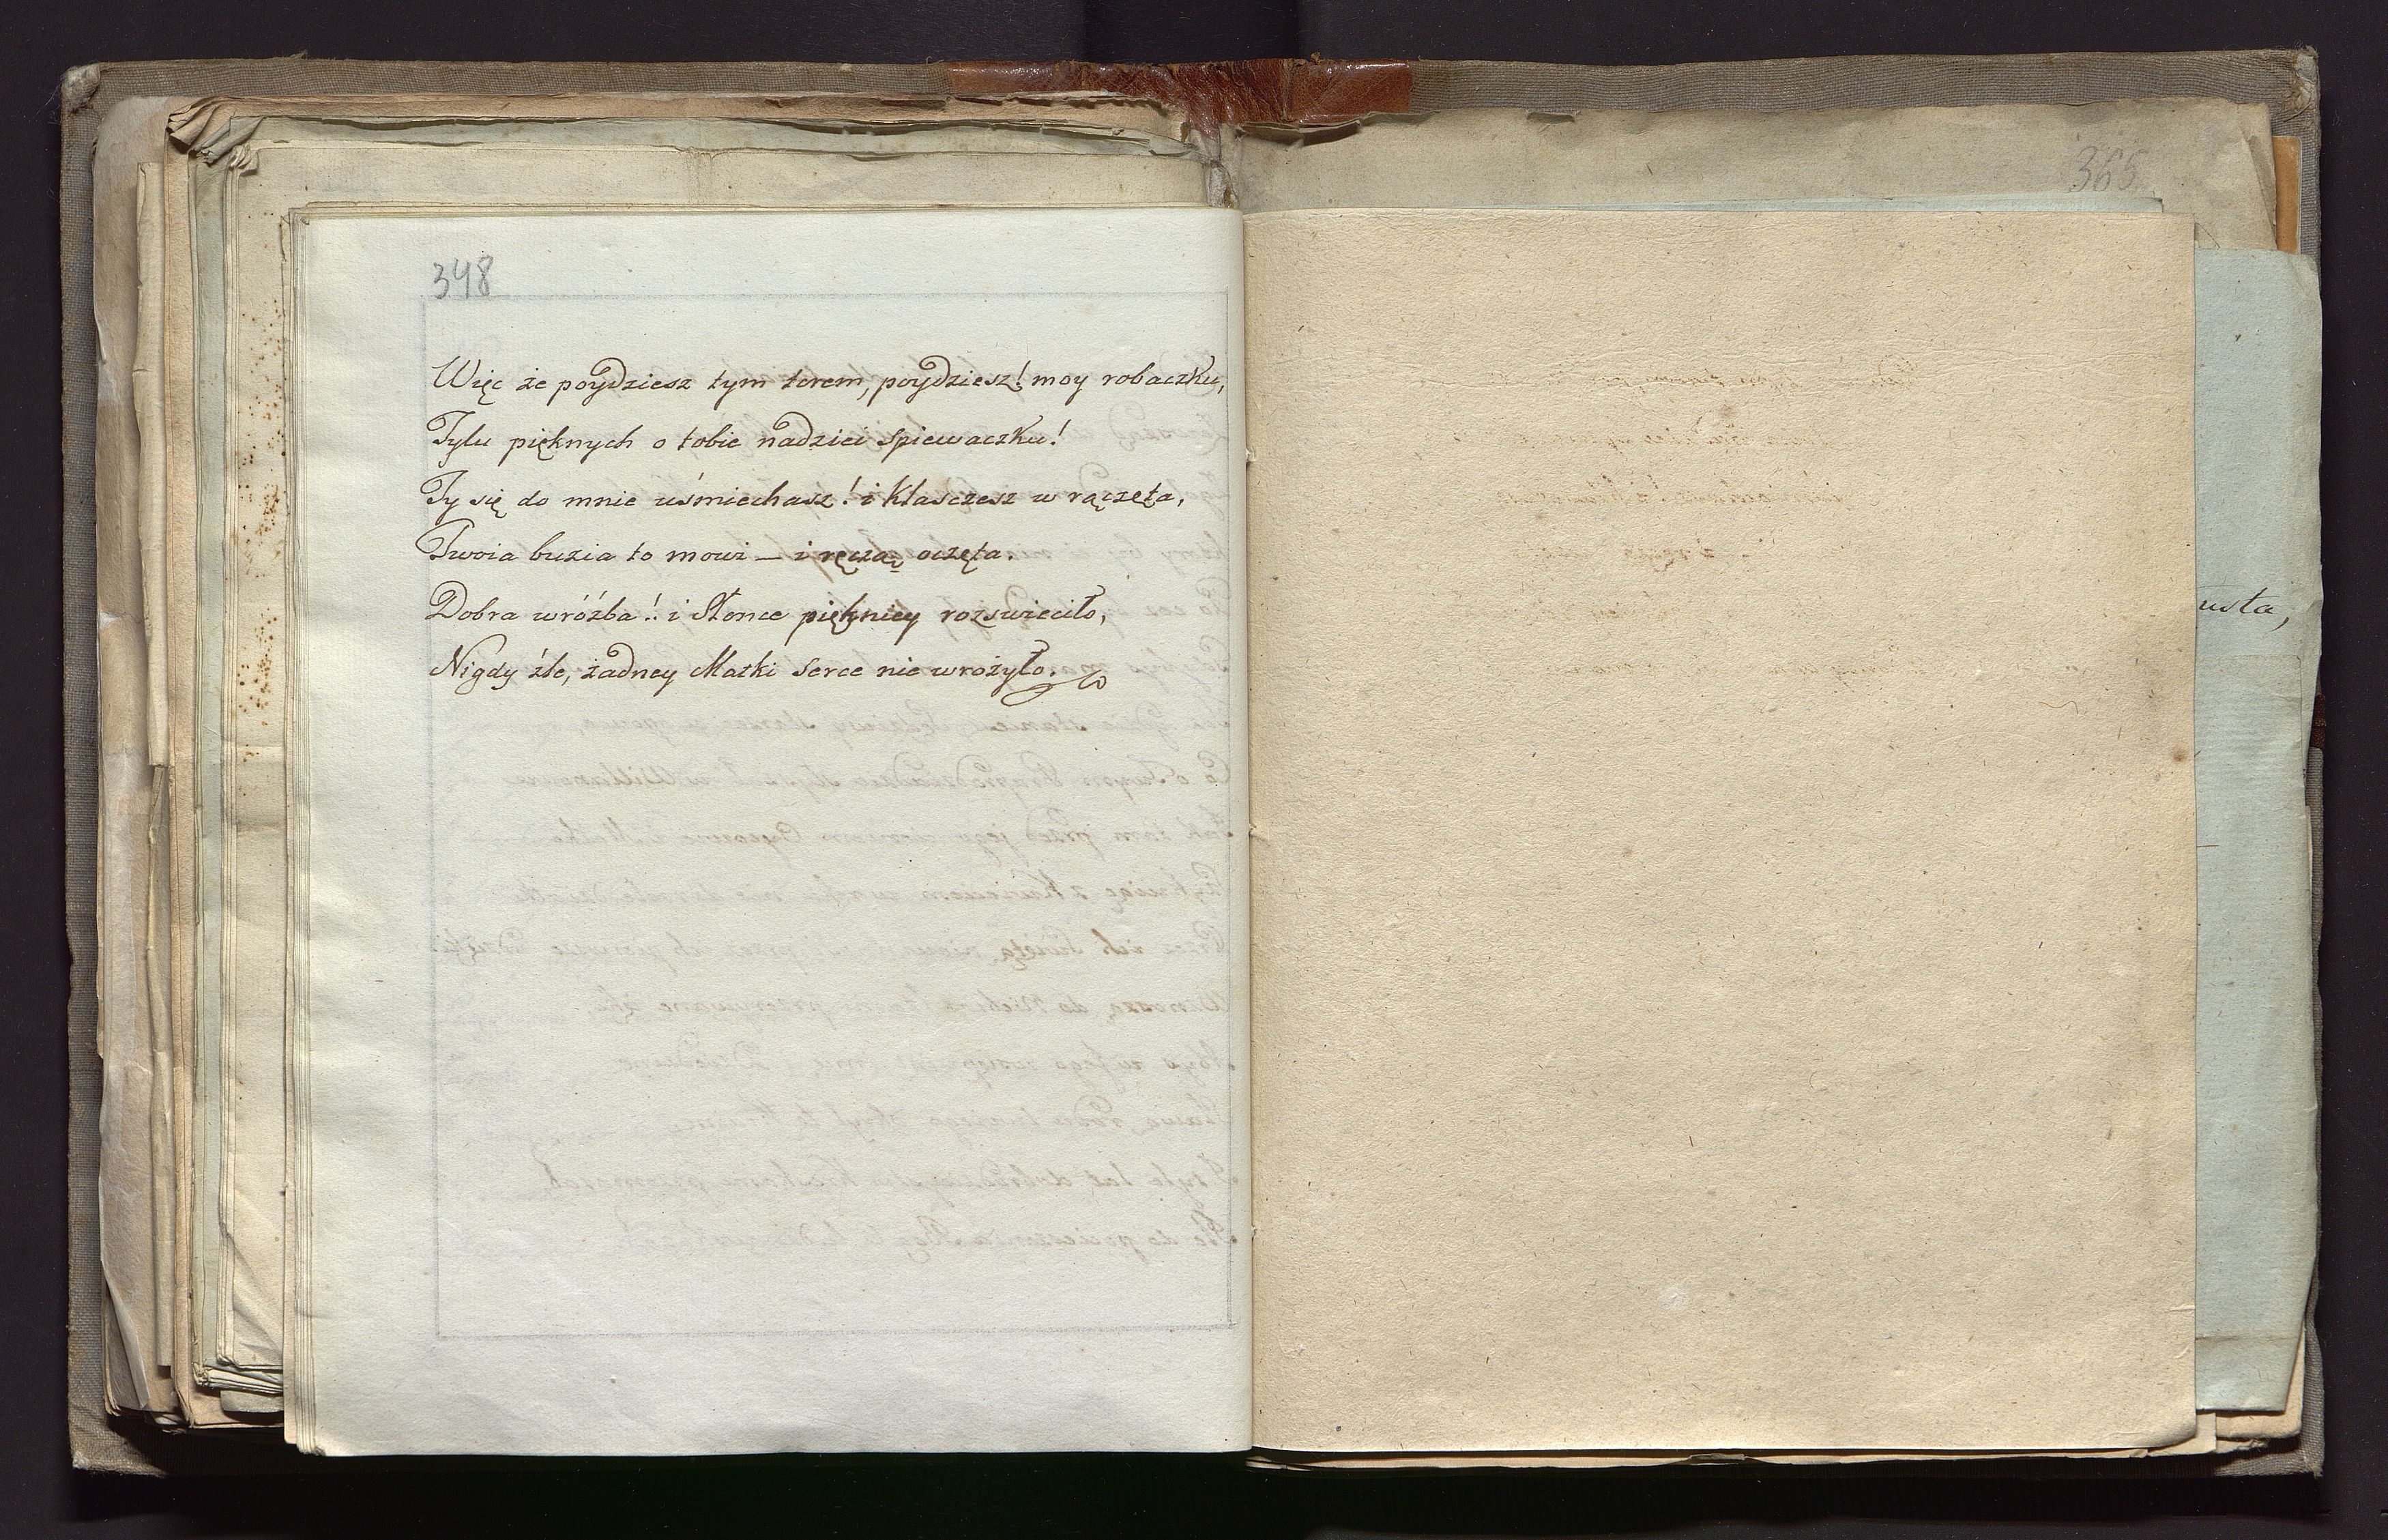 348
Więc że poydziesz tym torem, poydziesz! moy robaczku,
Tylu pięknych o tobie nadziei spiewaczku!
Ty się do mnie uśmiechasz! i klasczesz w rączęta,
Twoia buzia to mowi — i ręczą oczęta.
Dobra wróżba!! i Słonce piękniey rozswieciło,
Nigdy źle, żadney Matki serce nie wrożyło.
365
usta,